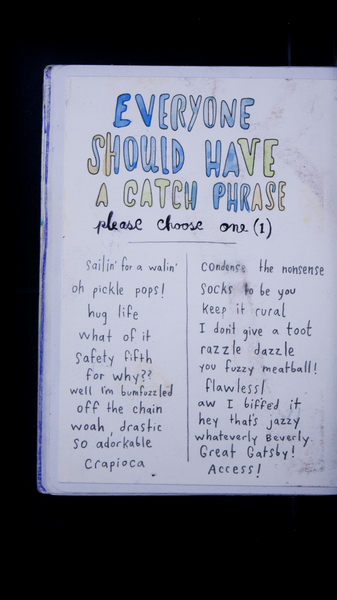 EVERYONE
SHOULD HAVE
A CATCH PHRASE
please choose one (1)
sailin' for a walin'
oh pickle pops!
hug life
what of it
safety fifth
for why??
well i'm bumfozzled
off the chain
woah, drastic
so adorkable
crapioca
condense the nonsense
socks to be you
keep it rural
I don't give a toot
razzle dazzle
you fuzzy meatball!
flawless!
aw I biffed it
hey that's jazzy
whateverly Beverly
Great Gatsby!
Access!